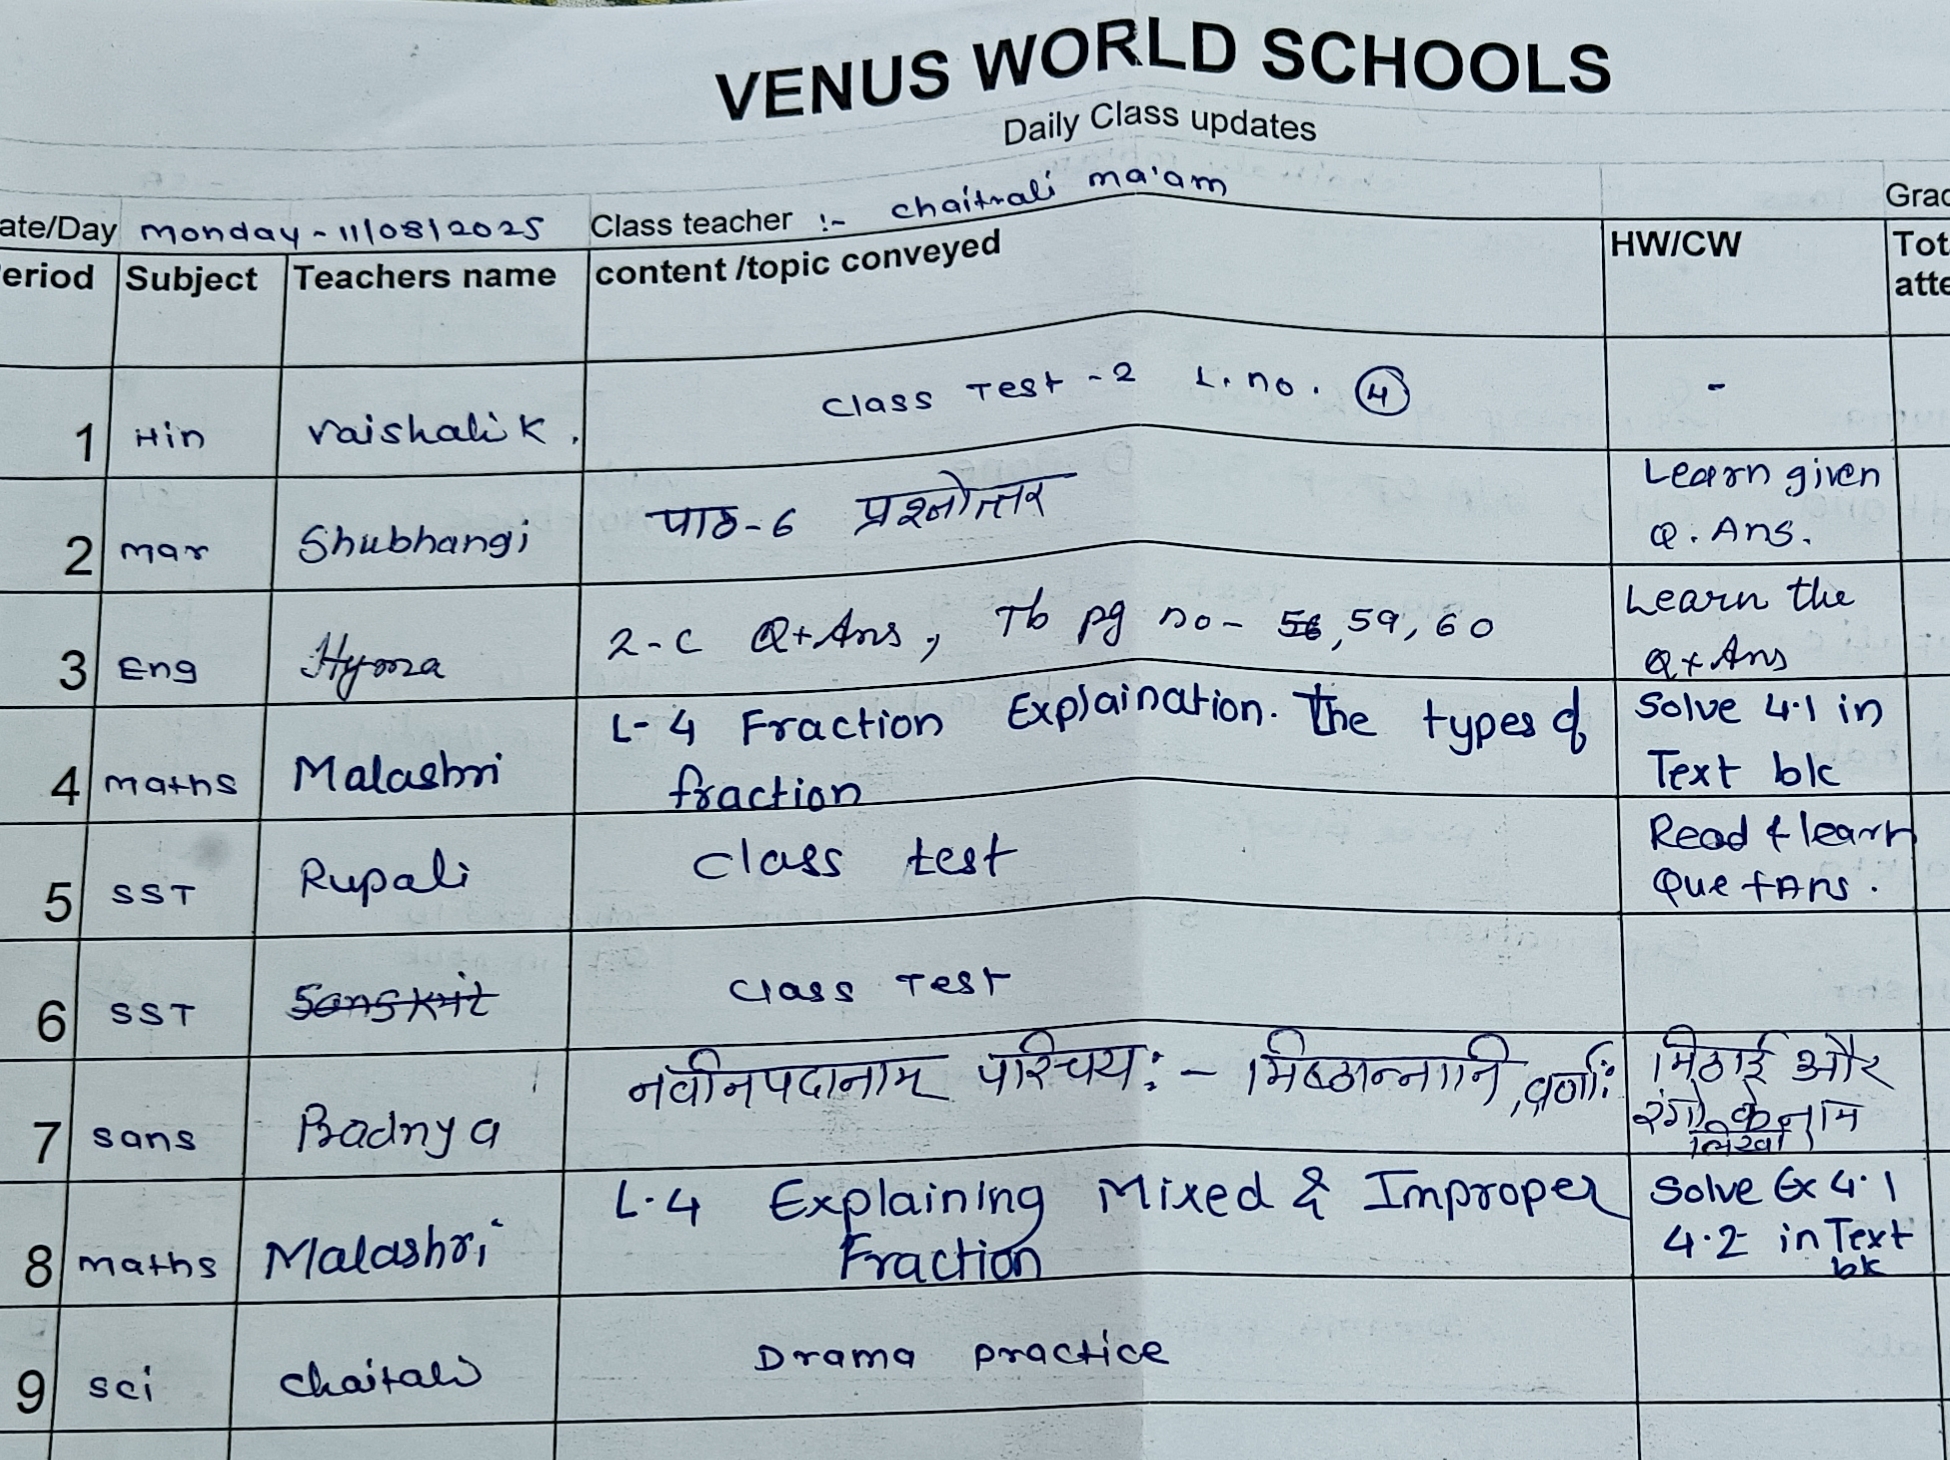 VENUS WORLD SCHOOLS
Daily Class updates
ate/Day monday - 11/08/2025 Class teacher :- chaitrali ma'am Grad
eriod Subject Teachers name content /topic conveyed HW/CW Tot
atte
1 Hin vaishali k. class Test - 2 L. no. 4 -
2 mar Shubhangi पाठ-6 प्रश्नोत्तर Learn given
Q. Ans.
3 Eng Hyma 2-C Q+Ans, Tb pg no - 56, 59, 60 Learn the
Q+Ans
4 maths Malashri L-4 Fraction Explaination. The types of Solve 4.1 in
fraction Text bk
5 SST Rupali class test Read & learn
Que +Ans.
6 SST Sanskrit class Test
7 sans Pradnya नवीनपदानाम् परिचय: - मिष्ठान्नानि, वर्णा: मिठाई और
रंगो के नाम
लिखो
8 maths Malashri L.4 Explaining Mixed & Improper Solve Ex 4.1
Fraction 4.2 in Text
bk
9 sci chaitali Drama practice